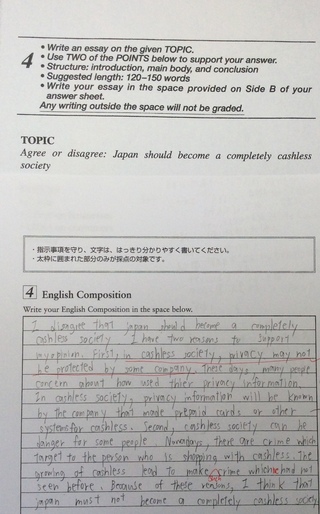 4
• Write an essay on the given TOPIC.
• Use TWO of the POINTS below to support your answer.
• Structure: introduction, main body, and conclusion
• Suggested length: 120–150 words
• Write your essay in the space provided on Side B of your
answer sheet.
Any writing outside the space will not be graded.
TOPIC
Agree or disagree: Japan should become a completely cashless
society
・指示事項を守り、文字は、はっきり分かりやすく書いてください。
・太枠に囲まれた部分のみが採点の対象です。
4 English Composition
Write your English Composition in the space below.
I disagree that japan should become a completely
cashless society. I have two reasons to support
my opinion. First, in cashless society, privacy may not
be protected by some company. These days, many people
concern about how used thier privacy information.
In cashless society, privacy information will be known
by the company that made prepaid cards or other
systems for cashless. Second, cashless society can be
danger for some people. Nowadays, there are crime which
target to the person who is shopping with cashless. The
growing of cashless lead to make crime which had not
seen before. Because of these reasons, I think that
japan must not become a completely cashless society